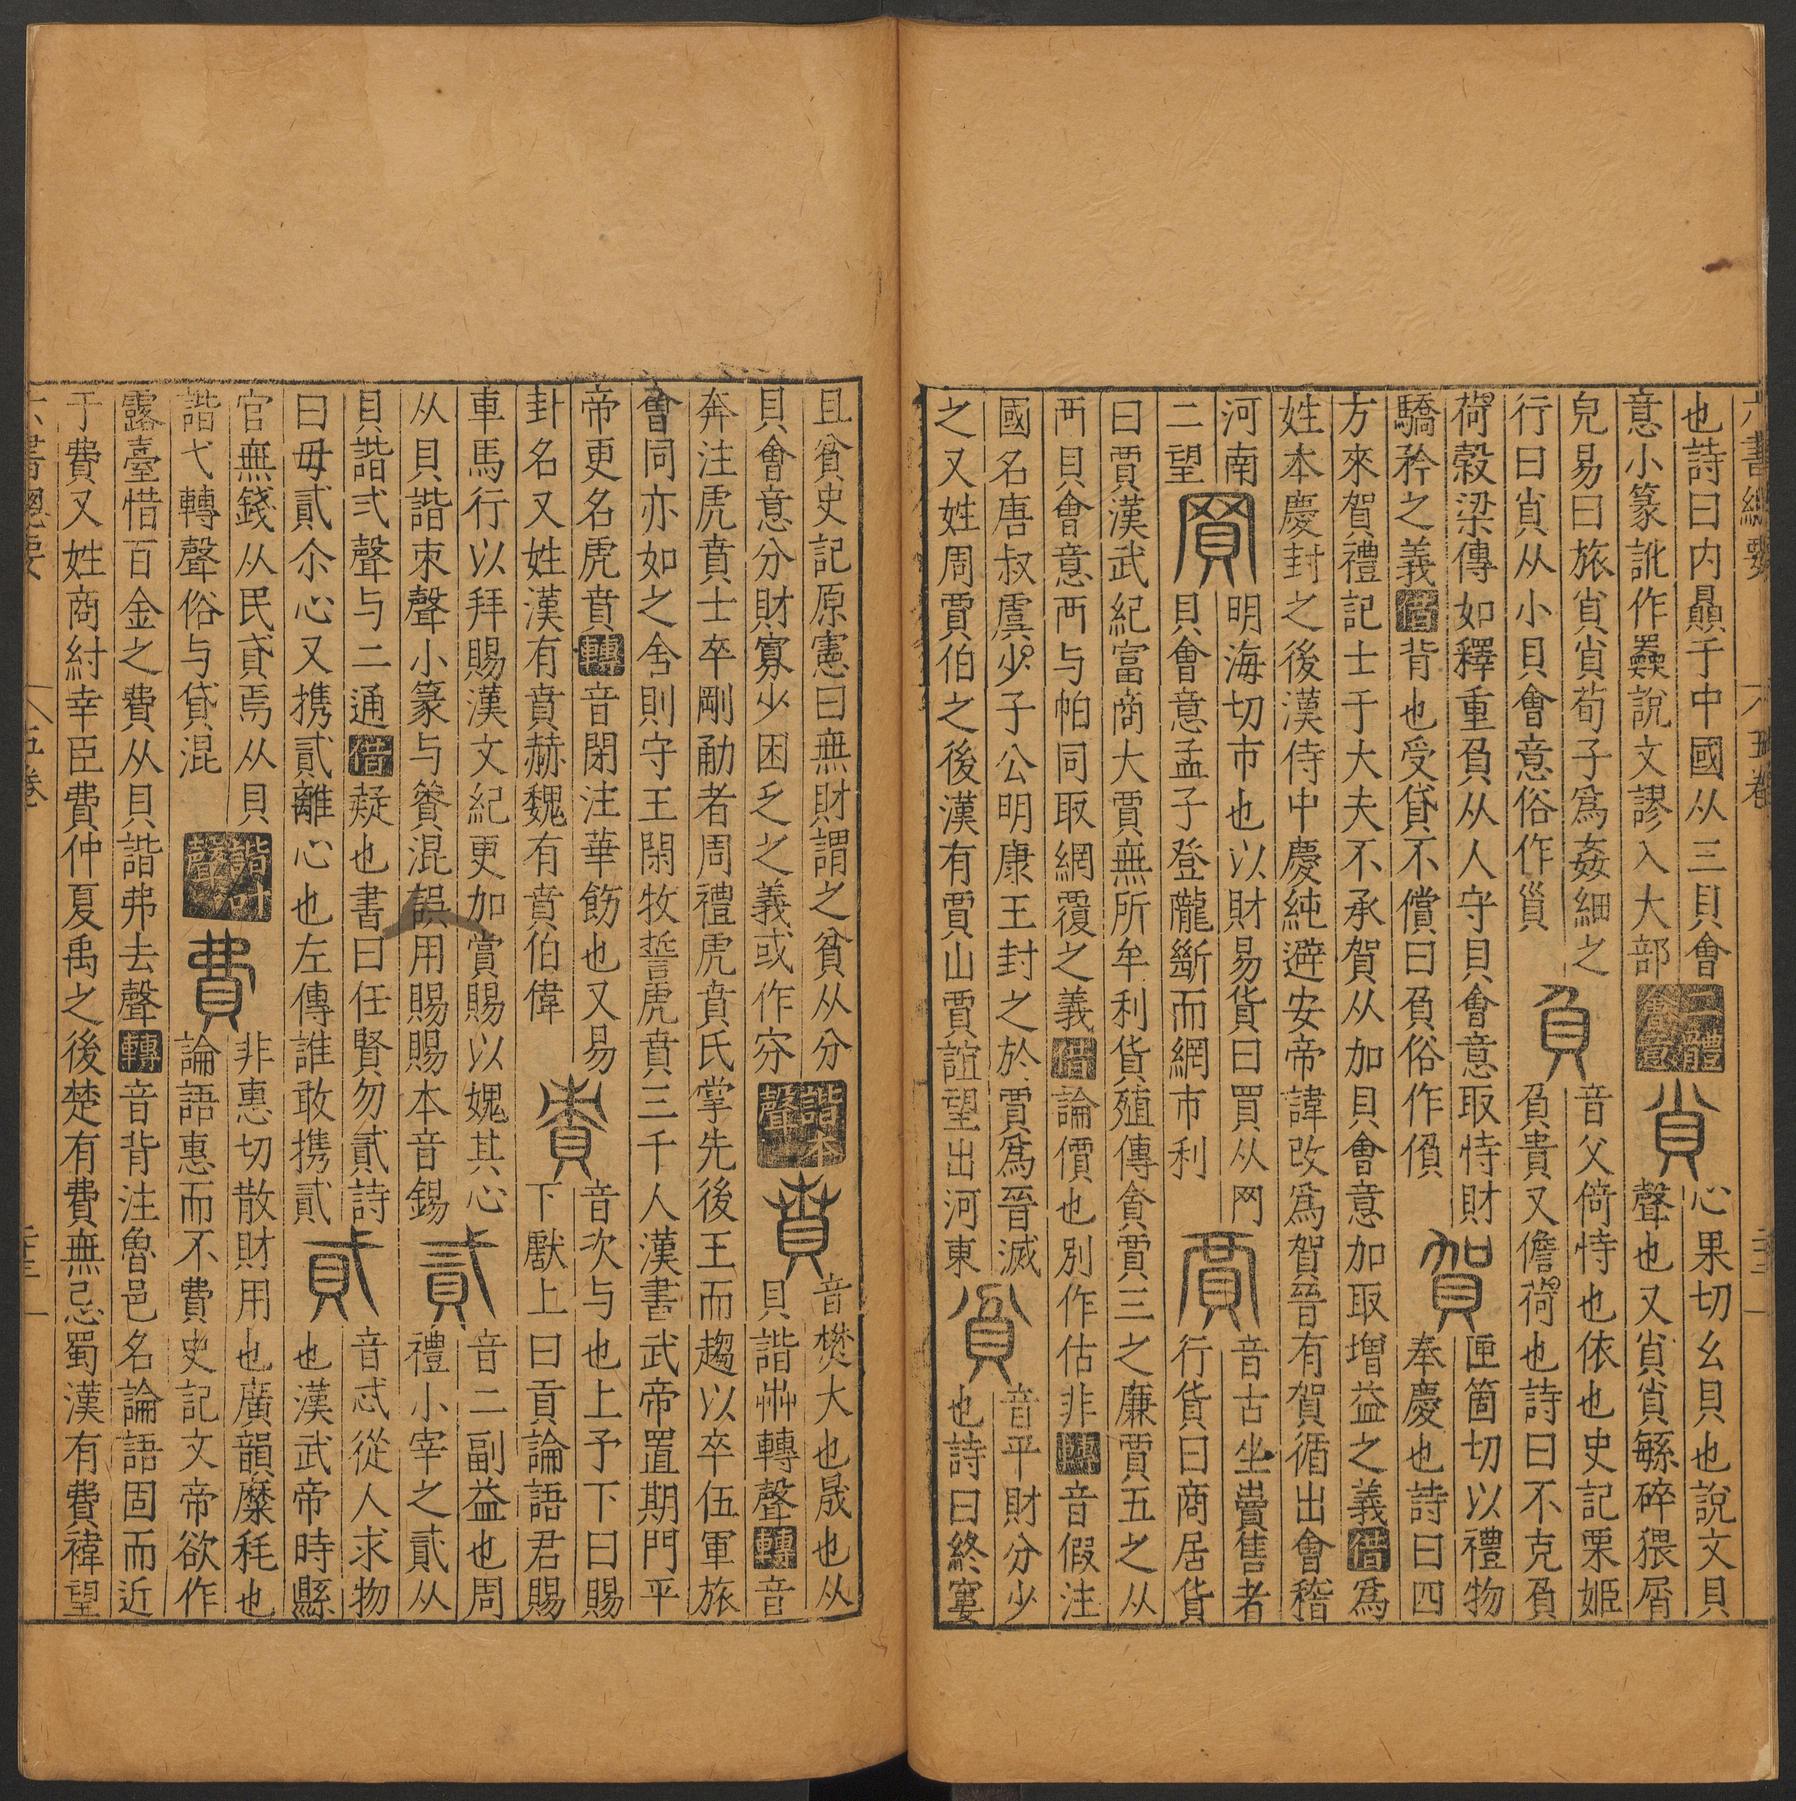 六書總要 五卷
也詩曰内奰于中國从三貝會
意小篆訛作𧖅說文謬入大部
二體會意
𧴪
心果切幺貝也說文貝
聲也又𧴪𧴪緐碎猥屑
皃易曰旅𧴪𧴪荀子爲姦細之
行曰𧴪从小貝會意俗作貨
負
音父倚恃也依也史記栗姬
負貴又儋荷也詩曰不克負
荷穀梁傳如釋重負从人守貝會意取恃財
驕矜之義借背也受貸不償曰負俗作偩
賀
匣箇切以禮物
奉慶也詩曰四
方來賀禮記士于大夫不承賀从加貝會意加取增益之義借爲
姓本慶封之後漢侍中慶純避安帝諱改爲賀晉有賀循出會稽
河南
二望
買
明海切市也以財易貨曰買从网
貝會意孟子登隴斷而網市利
賈
音古坐賣售者
行貨曰商居貨
曰賈漢武紀富商大賈無所牟利貨殖傳貪賈三之廉賈五之从
襾貝會意襾与帕同取網覆之義借論價也別作估非轉音假注
國名唐叔虞少子公明康王封之於賈爲晉滅
之又姓周賈伯之後漢有賈山賈誼望出河東
貧
音平財分少
也詩曰終窶
且貧史記原憲曰無財謂之貧从分
貝會意分財寡少困乏之義或作穷
諧本聲
賁
音樊大也晟也从
貝諧卉轉聲轉音
奔注虎賁士卒剛勈者周禮虎賁氏掌先後王而趨以卒伍軍旅
會同亦如之舍則守王閑牧誓虎賁三千人漢書武帝置期門平
帝更名虎賁轉音閉注華飭也又易
卦名又姓漢有賁赫魏有賁伯偉
賜
音次与也上予下曰賜
下獻上曰貢論語君賜
車馬行以拜賜漢文紀更加賞賜以媿其心
从貝諧朿聲小篆与賫混誤用賜賜本音錫
貳
音二副益也周
禮小宰之貳从
貝諧弍聲与二通借疑也書曰任賢勿貳詩
曰毋貳尒心又携貳離心也左傳誰敢携貳
貣
音忒從人求物
也漢武帝時縣
官無錢从民貣焉从貝
諧弋轉聲俗与貸混
諧聲
費
非惠切散財用也廣韻糜秏也
論語惠而不費史記文帝欲作
露臺惜百金之費从貝諧弗去聲轉音背注魯邑名論語固而近
于費又姓商紂幸臣費仲夏禹之後楚有費無忌蜀漢有費禕望
六書總要 五卷